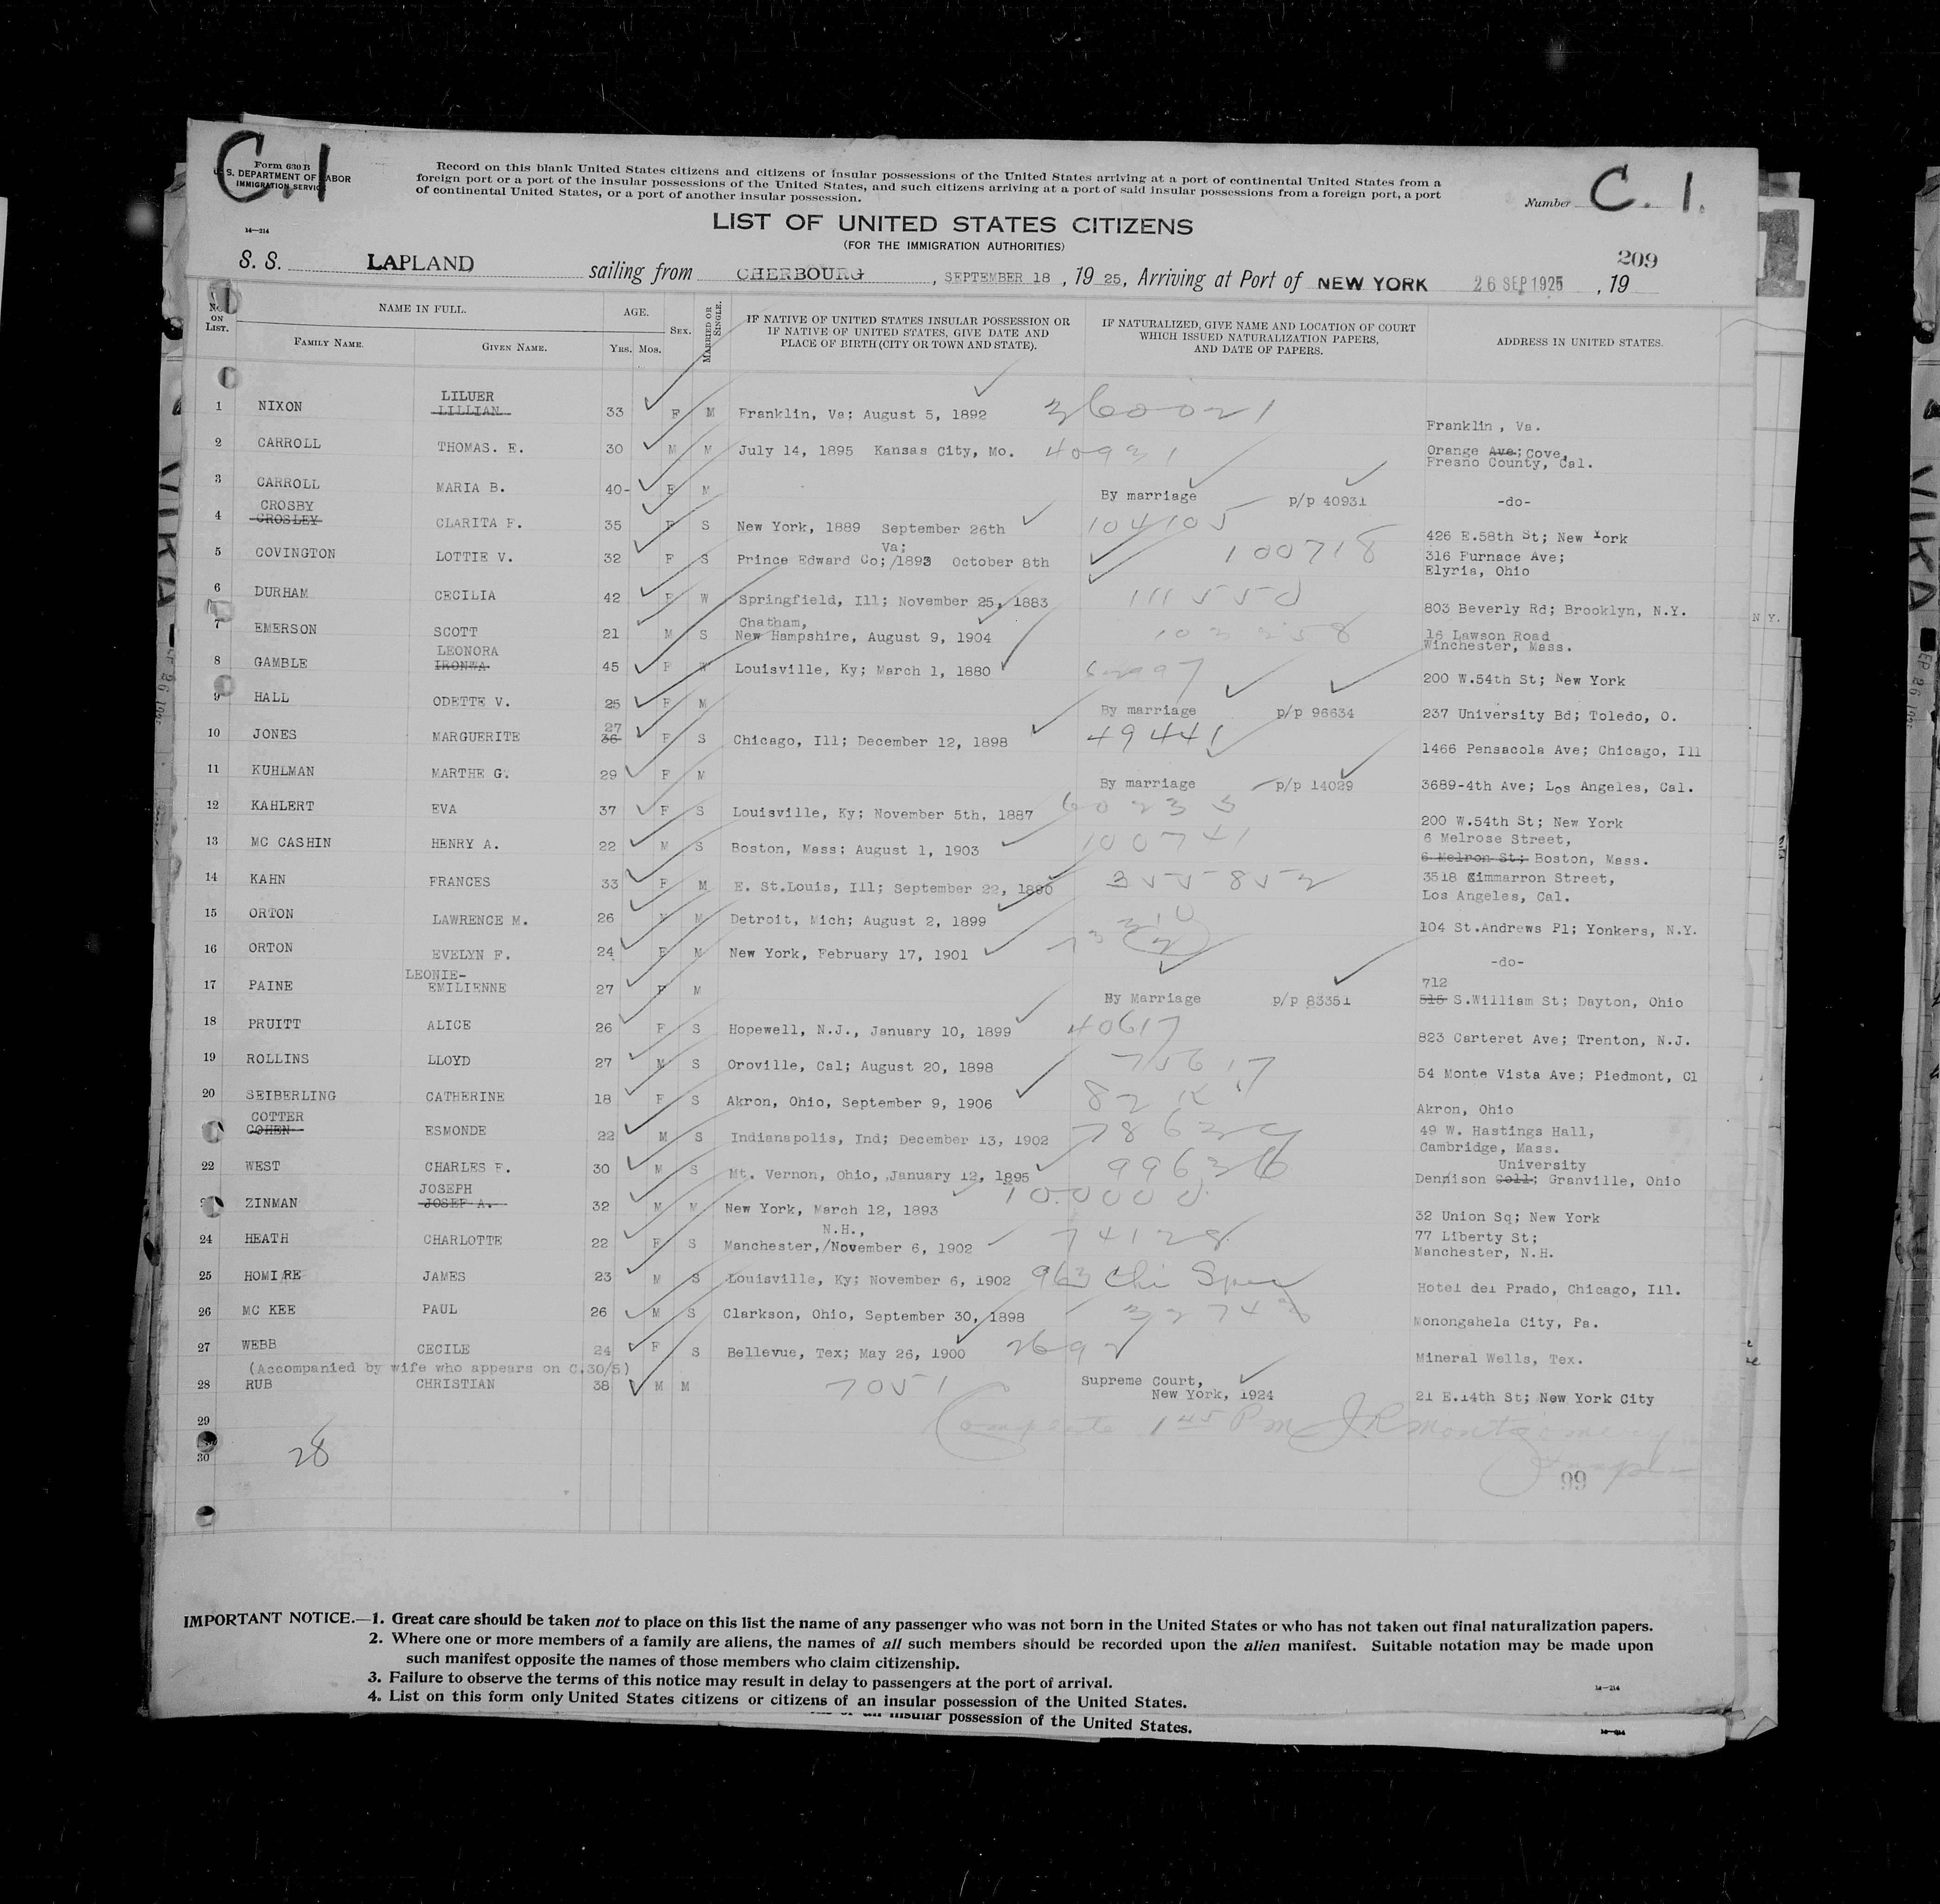 C.1
Form 630 B
U. S. DEPARTMENT OF LABOR
IMMIGRATION SERVICE
14—214
Record on this blank United States citizens and citizens of insular possessions of the United States arriving at a port of continental United States from a
foreign port or a port of the insular possessions of the United States, and such citizens arriving at a port of said insular possessions from a foreign port, a port
of continental United States, or a port of another insular possession.
Number C. 1.
LIST OF UNITED STATES CITIZENS
(FOR THE IMMIGRATION AUTHORITIES)
209
S. S. LAPLAND sailing from CHERBOURG, SEPTEMBER 18, 1925, Arriving at Port of NEW YORK 26 SEP 1925, 19
No. ON LIST. NAME IN FULL. FAMILY NAME. GIVEN NAME. AGE. YRS. MOS. SEX. MARRIED OR SINGLE. IF NATIVE OF UNITED STATES INSULAR POSSESSION OR IF NATIVE OF UNITED STATES, GIVE DATE AND PLACE OF BIRTH (CITY OR TOWN AND STATE). IF NATURALIZED, GIVE NAME AND LOCATION OF COURT WHICH ISSUED NATURALIZATION PAPERS, AND DATE OF PAPERS. ADDRESS IN UNITED STATES.
LILUER
1 NIXON LILLIAN 33 F M Franklin, Va; August 5, 1892 360021 Franklin, Va.
2 CARROLL THOMAS. E. 30 M M July 14, 1895 Kansas City, Mo. 40931 Orange Ave; Cove,
Fresno County, Cal.
3 CARROLL MARIA B. 40- F M By marriage p/p 40931 -do-
CROSBY
4 CROSLEY CLARITA F. 35 F S New York, 1889 September 26th 104105 426 E.58th St; New York
Va;
5 COVINGTON LOTTIE V. 32 F S Prince Edward Co; /1893 October 8th 100718 316 Furnace Ave;
Elyria, Ohio
6 DURHAM CECILIA 42 F W Springfield, Ill; November 25, 1883 111550 803 Beverly Rd; Brooklyn, N.Y.
Chatham,
7 EMERSON SCOTT 21 M S New Hampshire, August 9, 1904 103258 16 Lawson Road
Winchester, Mass.
LEONORA
8 GAMBLE IRONWA 45 F W Louisville, Ky; March 1, 1880 200 W.54th St; New York
9 HALL ODETTE V. 25 F M By marriage p/p 96634 237 University Bd; Toledo, O.
27
10 JONES MARGUERITE 36 F S Chicago, Ill; December 12, 1898 49441 1466 Pensacola Ave; Chicago, Ill
11 KUHLMAN MARTHE G. 29 F M By marriage p/p 14029 3689-4th Ave; Los Angeles, Cal.
12 KAHLERT EVA 37 F S Louisville, Ky; November 5th, 1887 200 W.54th St; New York
13 MC CASHIN HENRY A. 22 M S Boston, Mass; August 1, 1903 100741 6 Melrose Street,
6 Melron St; Boston, Mass.
14 KAHN FRANCES 33 F M E. St.Louis, Ill; September 22, 1890 355852 3518 Cimmarron Street,
Los Angeles, Cal.
15 ORTON LAWRENCE M. 26 M M Detroit, Mich; August 2, 1899 104 St.Andrews Pl; Yonkers, N.Y.
16 ORTON EVELYN F. 24 F M New York, February 17, 1901 -do-
LEONIE-
17 PAINE EMILIENNE 27 F M By Marriage p/p 83351 712
515 S.William St; Dayton, Ohio
18 PRUITT ALICE 26 F S Hopewell, N.J., January 10, 1899 40617 823 Carteret Ave; Trenton, N.J.
19 ROLLINS LLOYD 27 M S Oroville, Cal; August 20, 1898 75617 54 Monte Vista Ave; Piedmont, Cl
20 SEIBERLING CATHERINE 18 F S Akron, Ohio, September 9, 1906 Akron, Ohio
COTTER
COHEN ESMONDE 22 M S Indianapolis, Ind; December 13, 1902 49 W. Hastings Hall,
Cambridge, Mass.
22 WEST CHARLES F. 30 M S Mt. Vernon, Ohio, January 12, 1895 99636 University
Dennison Coll; Granville, Ohio
JOSEPH
ZINMAN JOSEF A. 32 M M New York, March 12, 1893 100000 32 Union Sq; New York
N.H.,
24 HEATH CHARLOTTE 22 F S Manchester,/November 6, 1902 74128 77 Liberty St;
Manchester, N.H.
25 HOMIRE JAMES 23 M S Louisville, Ky; November 6, 1902 963 Chi Spec Hotel del Prado, Chicago, Ill.
26 MC KEE PAUL 26 M S Clarkson, Ohio, September 30, 1898 Monongahela City, Pa.
27 WEBB CECILE 24 F S Bellevue, Tex; May 26, 1900 2692 Mineral Wells, Tex.
(Accompanied by wife who appears on C.30/5)
28 RUB CHRISTIAN 38 M M 7051 Supreme Court,
New York, 1924 21 E.14th St; New York City
29
30
28
Complete 1 45 PM J R Montgomery
99
IMPORTANT NOTICE.—1. Great care should be taken not to place on this list the name of any passenger who was not born in the United States or who has not taken out final naturalization papers.
2. Where one or more members of a family are aliens, the names of all such members should be recorded upon the alien manifest. Suitable notation may be made upon
such manifest opposite the names of those members who claim citizenship.
3. Failure to observe the terms of this notice may result in delay to passengers at the port of arrival.
4. List on this form only United States citizens or citizens of an insular possession of the United States.
14—214
insular possession of the United States.